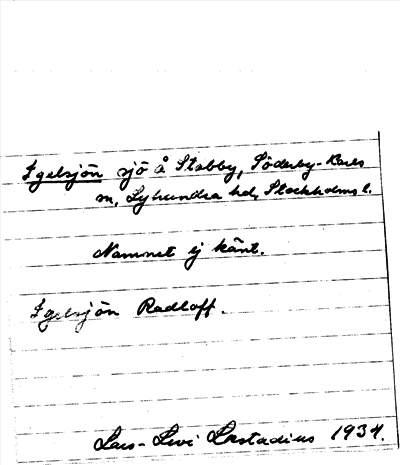 Igelsjön sjö å Stabby, Söderby-Karls
m, Lyhundra hd, Stockholms l.
Namnet ej känt.
Igelsjön Radloff.
Lars-Levi Læstadius 1934.